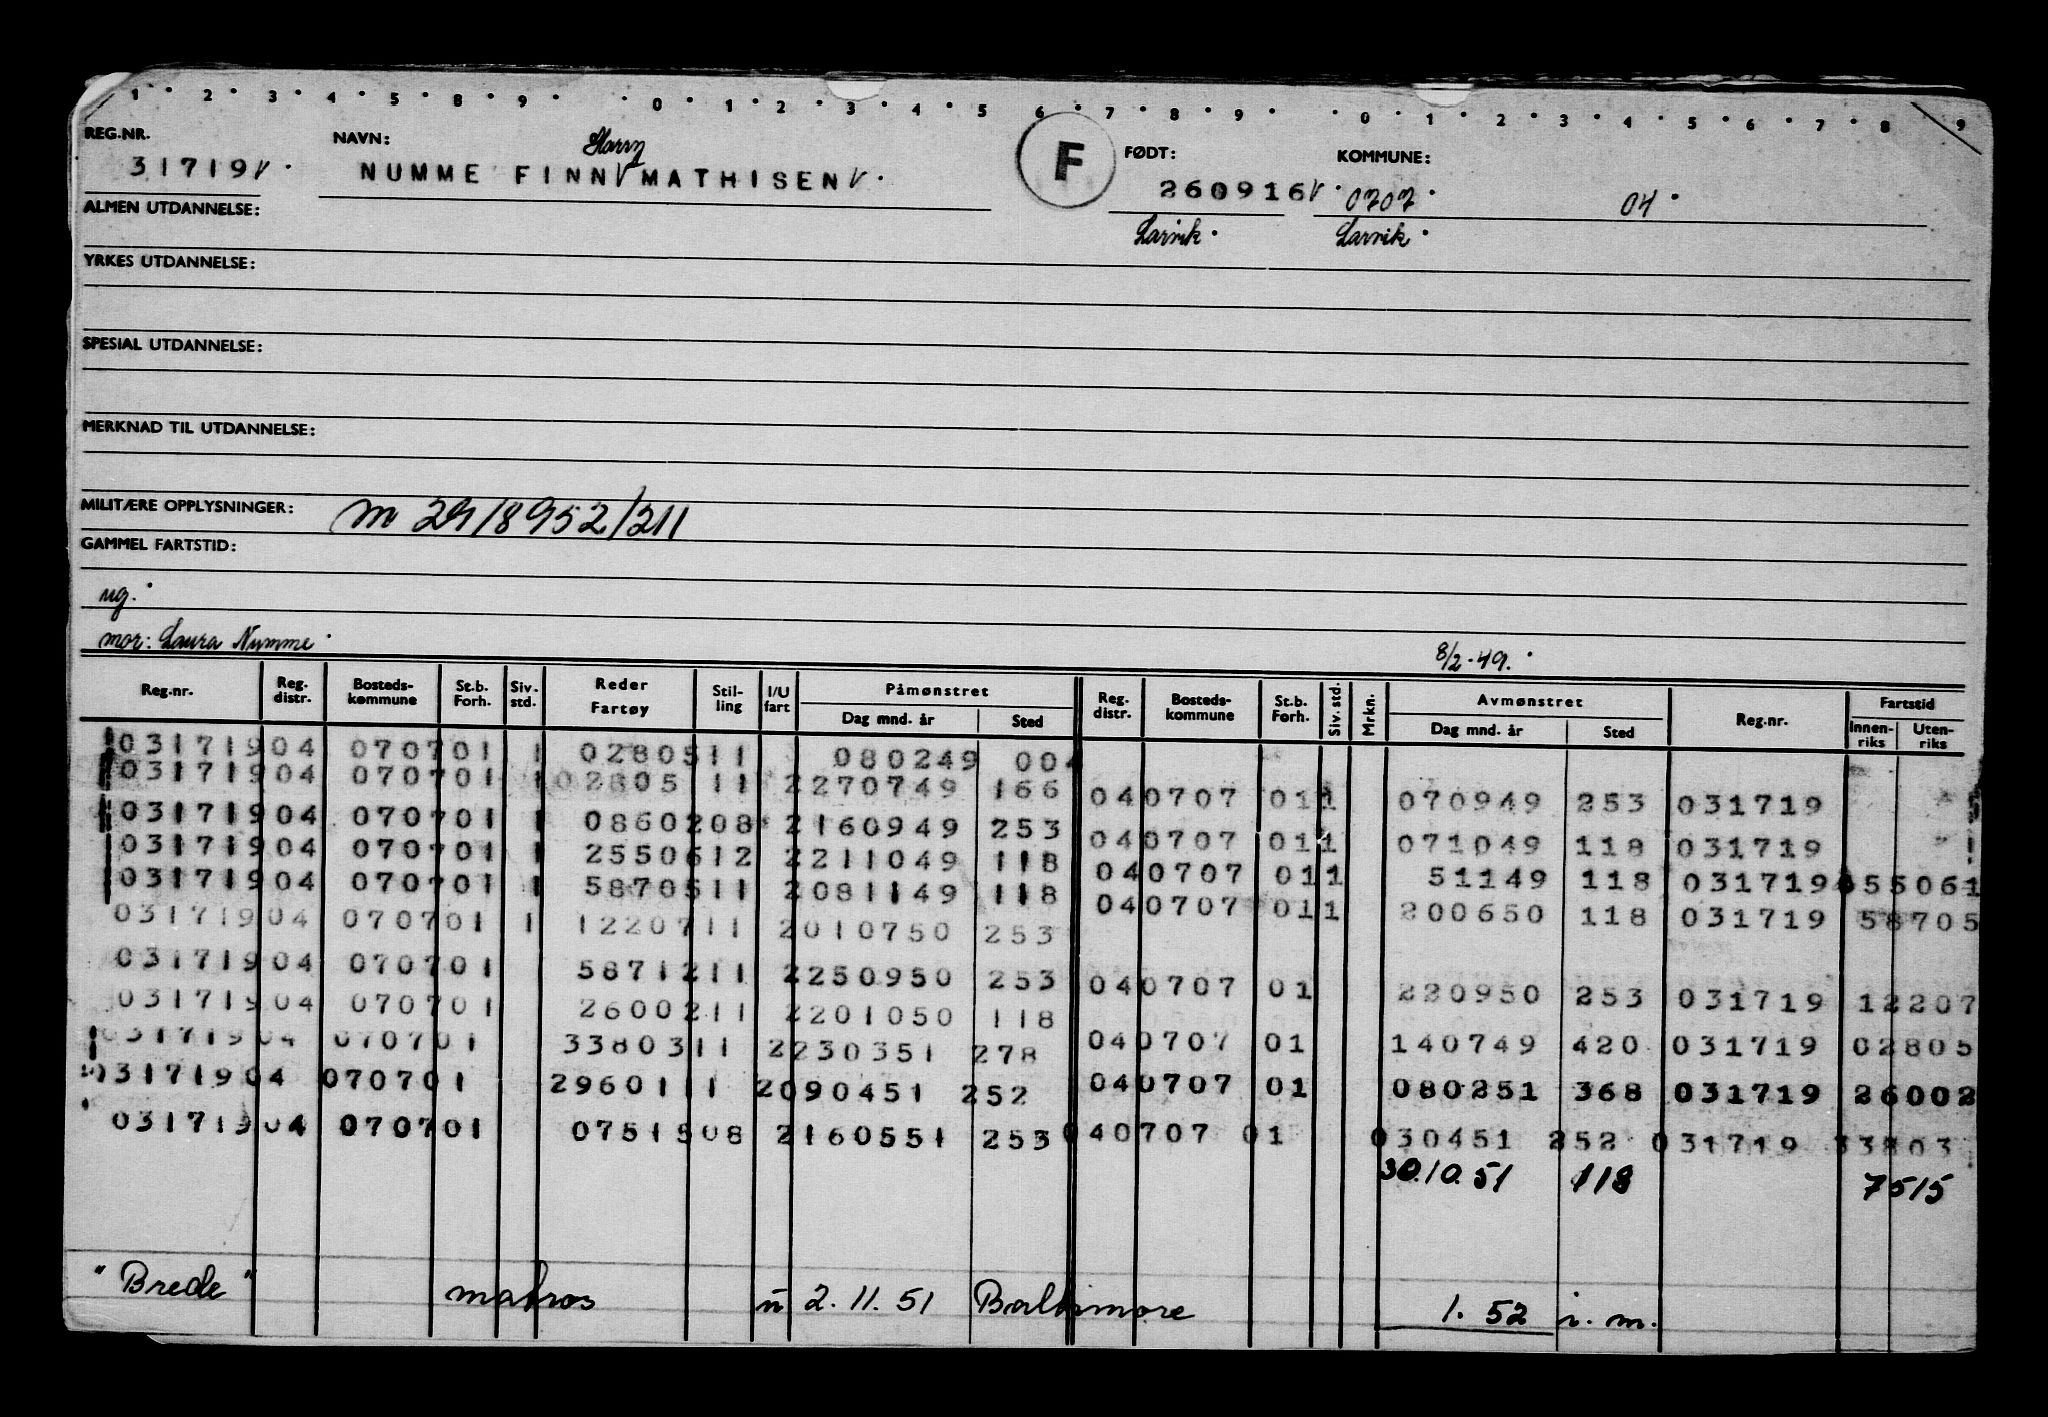 1 · 2 · 3 · 4 · 5 · 8 · 9 · 0 · 1 · 2 · 3 · 4 · 5 6 · 7 · 8 · 9 · · 0 · 1 · 2 · 3 · 4 · 5 · 6 · 7 · 8 · 9
REG.NR. NAVN: Harry F FØDT: KOMMUNE:
31719 NUMME FINN MATHISEN 260916 0707 04
ALMEN UTDANNELSE: Larvik Larvik
YRKES UTDANNELSE:
SPESIAL UTDANNELSE:
MERKNAD TIL UTDANNELSE:
MILITÆRE OPPLYSNINGER: m 29/8952/211
GAMMEL FARTSTID:
ug.
mor: Laura Numme 8/2-49.
Reg.nr. Reg. distr. Bosteds-kommune St.b. Forh. Siv. std. Reder Fartøy Stil-ling I/U fart Påmønstret Dag mnd. år Sted Reg. distr. Bosteds-kommune St.b. Forh. Siv. std. Mrkn. Avmønstret Dag mnd. år Sted Reg.nr. Fartstid Innen-riks Uten-riks
03171904 070701 1 0280511 080249 004
03171904 070701 1 02805 11 2270749 166 040707 011 070949 253 031719
03171904 070701 1 0860208 2160949 253 040707 011 071049 118 031719
03171904 070701 1 2550612 2211049 118 040707 011 51149 118 031719 55061
03171904 070701 1 5870511 2081149 118 040707 011 200650 118 031719 58705
03171904 070701 1 1220711 2010750 253
03171904 070701 5871211 2250950 253 040707 01 220950 253 031719 12207
03171904 070701 2600211 2201050 118
03171904 070701 3380311 2230351 278 040707 01 140749 420 031719 02805
03171904 070701 2960111 2090451 252 040707 01 080251 368 031719 26002
03171904 070701 0751508 2160551 253 040707 01 030451 252 031719 33803
30.10.51 118 7515
"Brede" matros u 2.11.51 Baltimore 1.52 i.m.